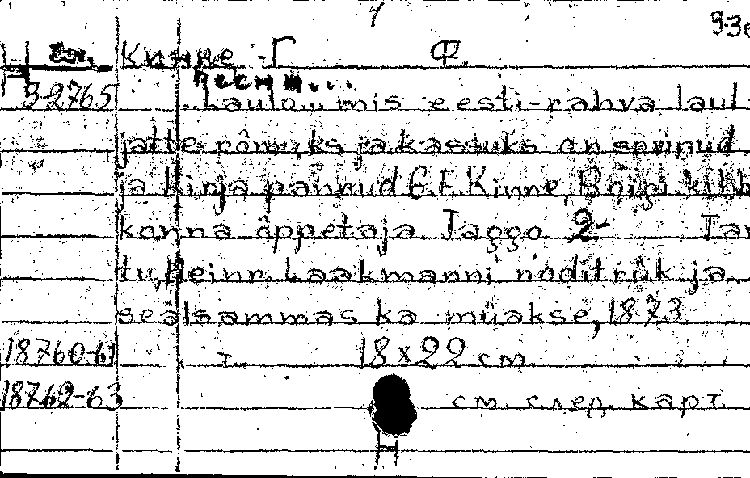 Кинне Г Ф.
Песни...
32765 "Laulo" mis eesti-rahva laul
jatte rõmuks ja kasuks on seainud
ja kirja pannud G. F. Kinne, Roigi kihh
konna õppetaja. Jaggo 2 Tar
tu, Heinr. Laakmanni nöditrük ja
seälsammas ka müakse, 1873
18760-61 18x22 см
18762-63 см. след. карт.